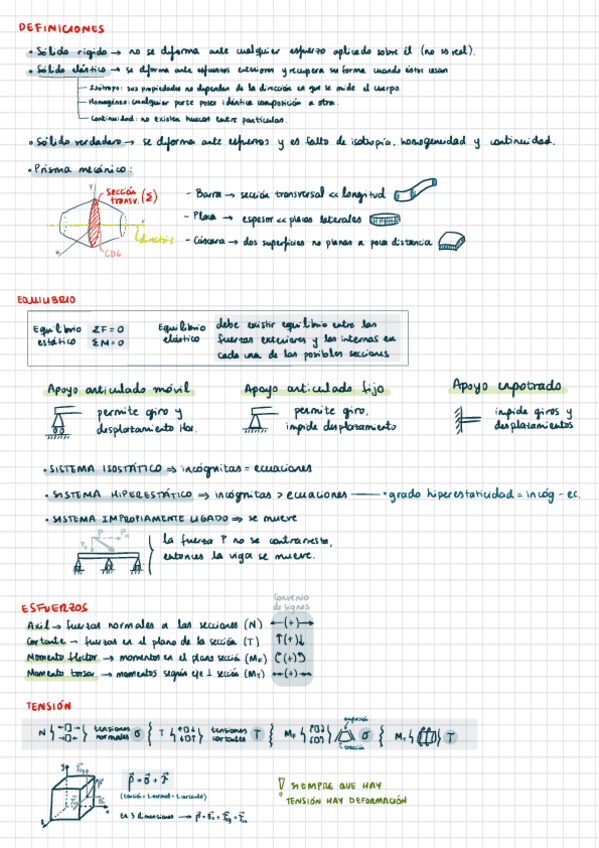 DEFINICIONES
• Sólido rígido → no se deforma ante cualquier esfuerzo aplicado sobre él (no es real).
• Sólido elástico → se deforma ante esfuerzos exteriores y recupera su forma cuando éstos cesan
Isótropo: sus propiedades no dependen de la dirección en que se mide el cuerpo.
Homogéneo: cualquier parte posee idéntica composición a otra.
Continuidad: no existen huecos entre partículas.
• Sólido verdadero → se deforma ante esfuerzos y es falto de isotropía, homogeneidad y continuidad.
• Prisma mecánico:
Sección
transv. (Σ)
directriz
CDG
- Barra → sección transversal << longitud
- Placa → espesor << placas laterales
- Cáscara → dos superficies no planas a poca distancia
EQUILIBRIO
Equilibrio estático ΣF = 0 ΣM = 0
Equilibrio elástico debe existir equilibrio entre las
fuerzas exteriores y las internas en
cada una de las posibles secciones
Apoyo articulado móvil
permite giro y
desplazamiento Hor.
Apoyo articulado fijo
permite giro,
impide desplazamiento
Apoyo empotrado
impide giros y
desplazamientos
• SISTEMA ISOSTÁTICO ⇒ incógnitas = ecuaciones
• SISTEMA HIPERESTÁTICO ⇒ incógnitas > ecuaciones → • grado hiperestaticidad = incóg - ec.
• SISTEMA IMPROPIAMENTE LIGADO ⇒ se mueve
la fuerza P no se contrarresta,
entonces la viga se mueve.
ESFUERZOS
Convenio
de signos
Axil → fuerzas normales a las secciones (N) ←(+)→
Cortante → fuerzas en el plano de la sección (T) ↑(+)↓
Momento flector → momentos en el plano sección (MF) (+)
Momento torsor → momentos según eje ⊥ sección (MT) (+)
TENSIÓN
N tensiones normales σ
T tensiones cortantes τ
MF tracción σ
MT τ
p = σ + τ
(tensión = t.normal + t.cortante)
En 3 dimensiones →
! SIEMPRE QUE HAY
TENSIÓN HAY DEFORMACIÓN